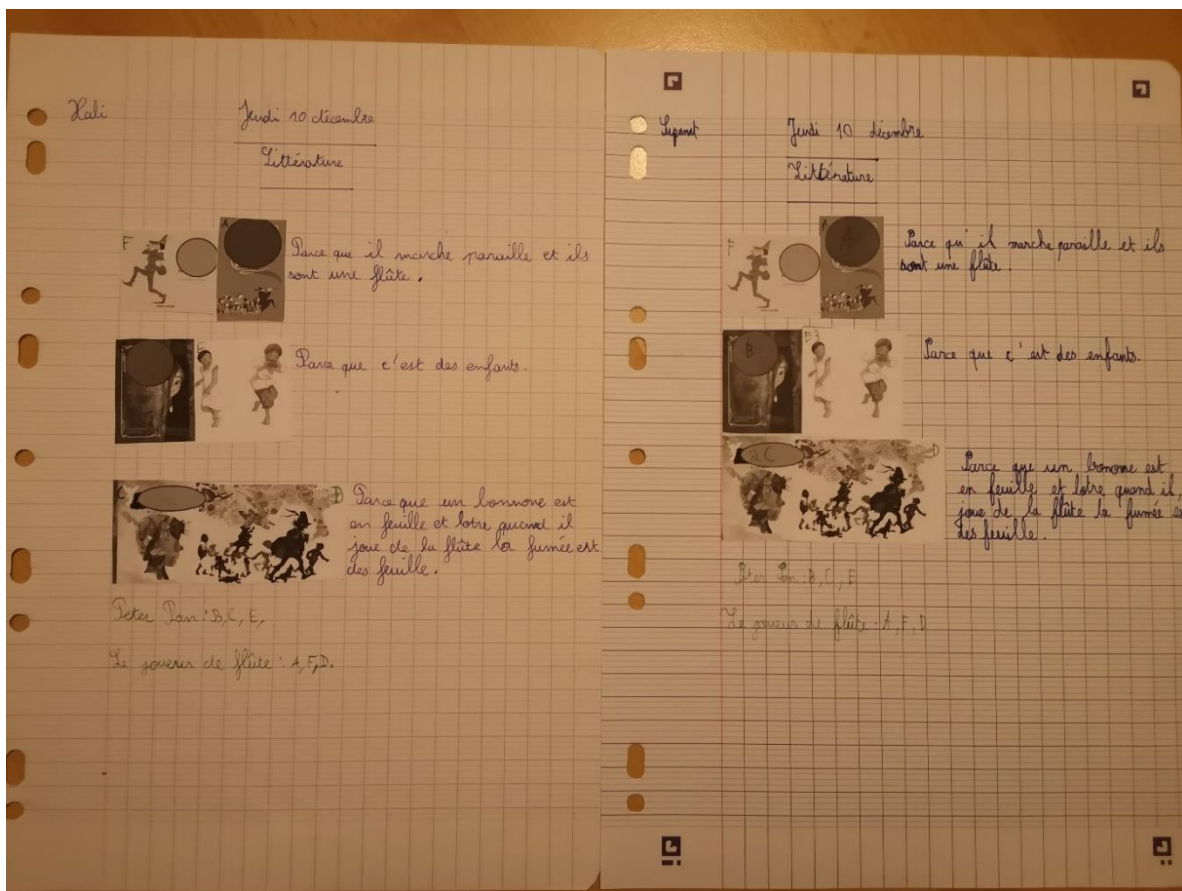 Kali
Jeudi 10 décembre
Littérature
F
A
Parce que il marche paraille et ils
sont une flûte.
E
Parce que c'est des enfants.
C
D
Parce que un bonnone est
en feuille et lotre quand il
joue de la flûte la fumée est
des feuille.
Peter Pan : B, C, E,
Le joueur de flûte : A, F, D.
Jeudi 10 décembre
Littérature
F
A
Parce qu'il marche paraille et ils
sont une flûte.
B
E
Parce que c'est des enfants.
C
D
Parce que un bonome est
en feuille et lotre quand il,
joue de la flûte la fumée
des feuille.
Peter Pan : B, C, E
Le joueur de flûte : A, F, D